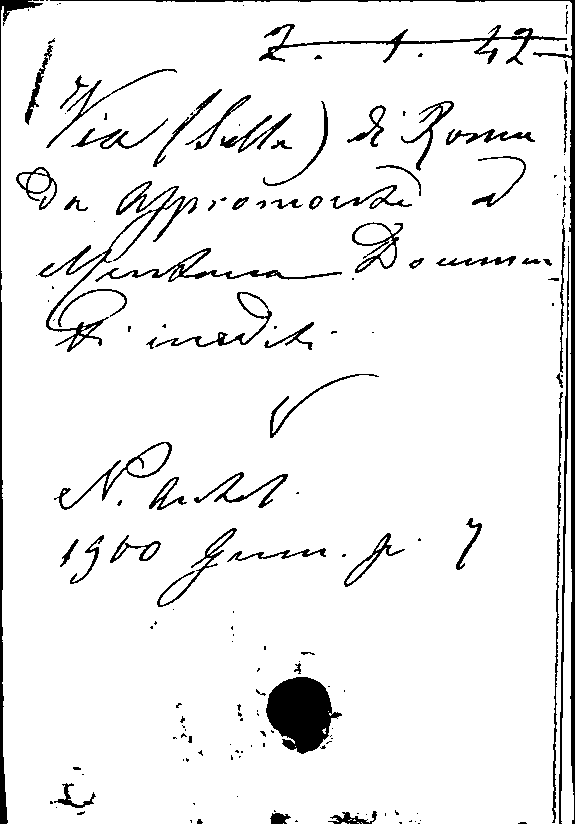 Z. 1. 42
Via (Sulla) di Roma
Da Aspromonte a
Mentana Documen
ti inediti
N. Antol.
1900 Genn. p. 7